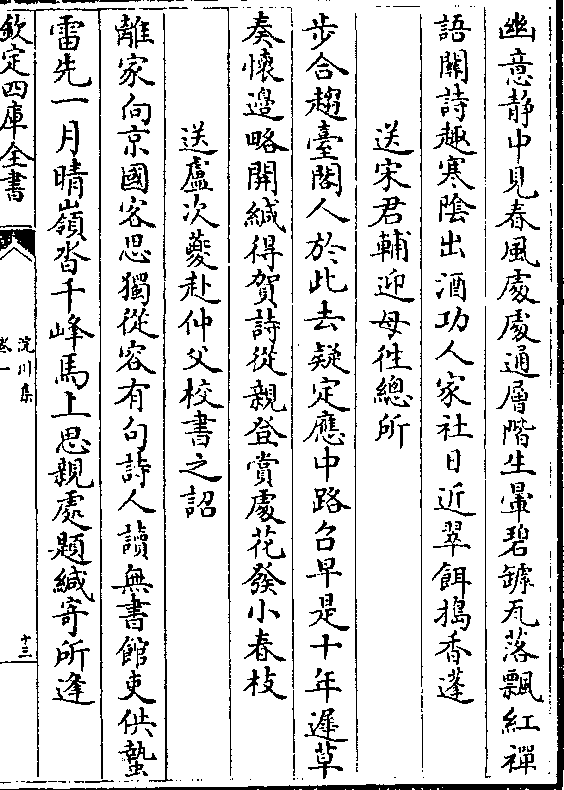 幽意静中見春風處處通層階生暈碧罅瓦落飄紅禪
語關詩趣寒陰出酒功人家社日近翠餌搗香蓬
送宋君輔迎母徃總所
步合趨臺閣人於此去疑定應中路召早是十年遲草
奏懷邉略開緘得賀詩從親登賞處花發小春枝
送盧次夔赴仲父校書之詔
離家向京國客思獨從容有句詩人讀無書館吏供蟄
雷先一月晴嶺沓千峰馬上思親處題緘寄所逢
欽定四庫全書
浣川集
卷一
十三